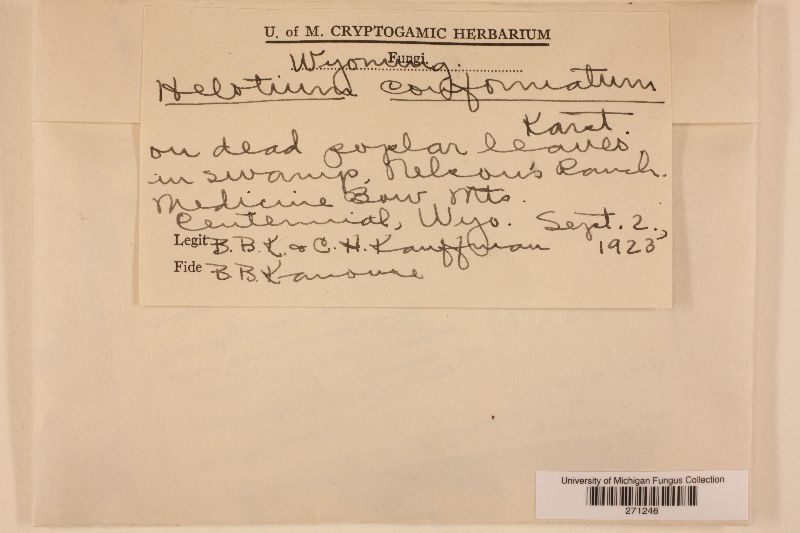 U. of M. CRYPTOGAMIC HERBARIUM
Fungi
Wyoming.
Helotium
Karst.
on dead poplar leaves
in swamp, Nelson's Ranch.
Medicine Bow Mts.
Centennial, Wyo. Sept. 2.,
Legit B.B.K. & C.H. Kauffman 1923
Fide B.B. Kanouse
University of Michigan Fungus Collection
271246